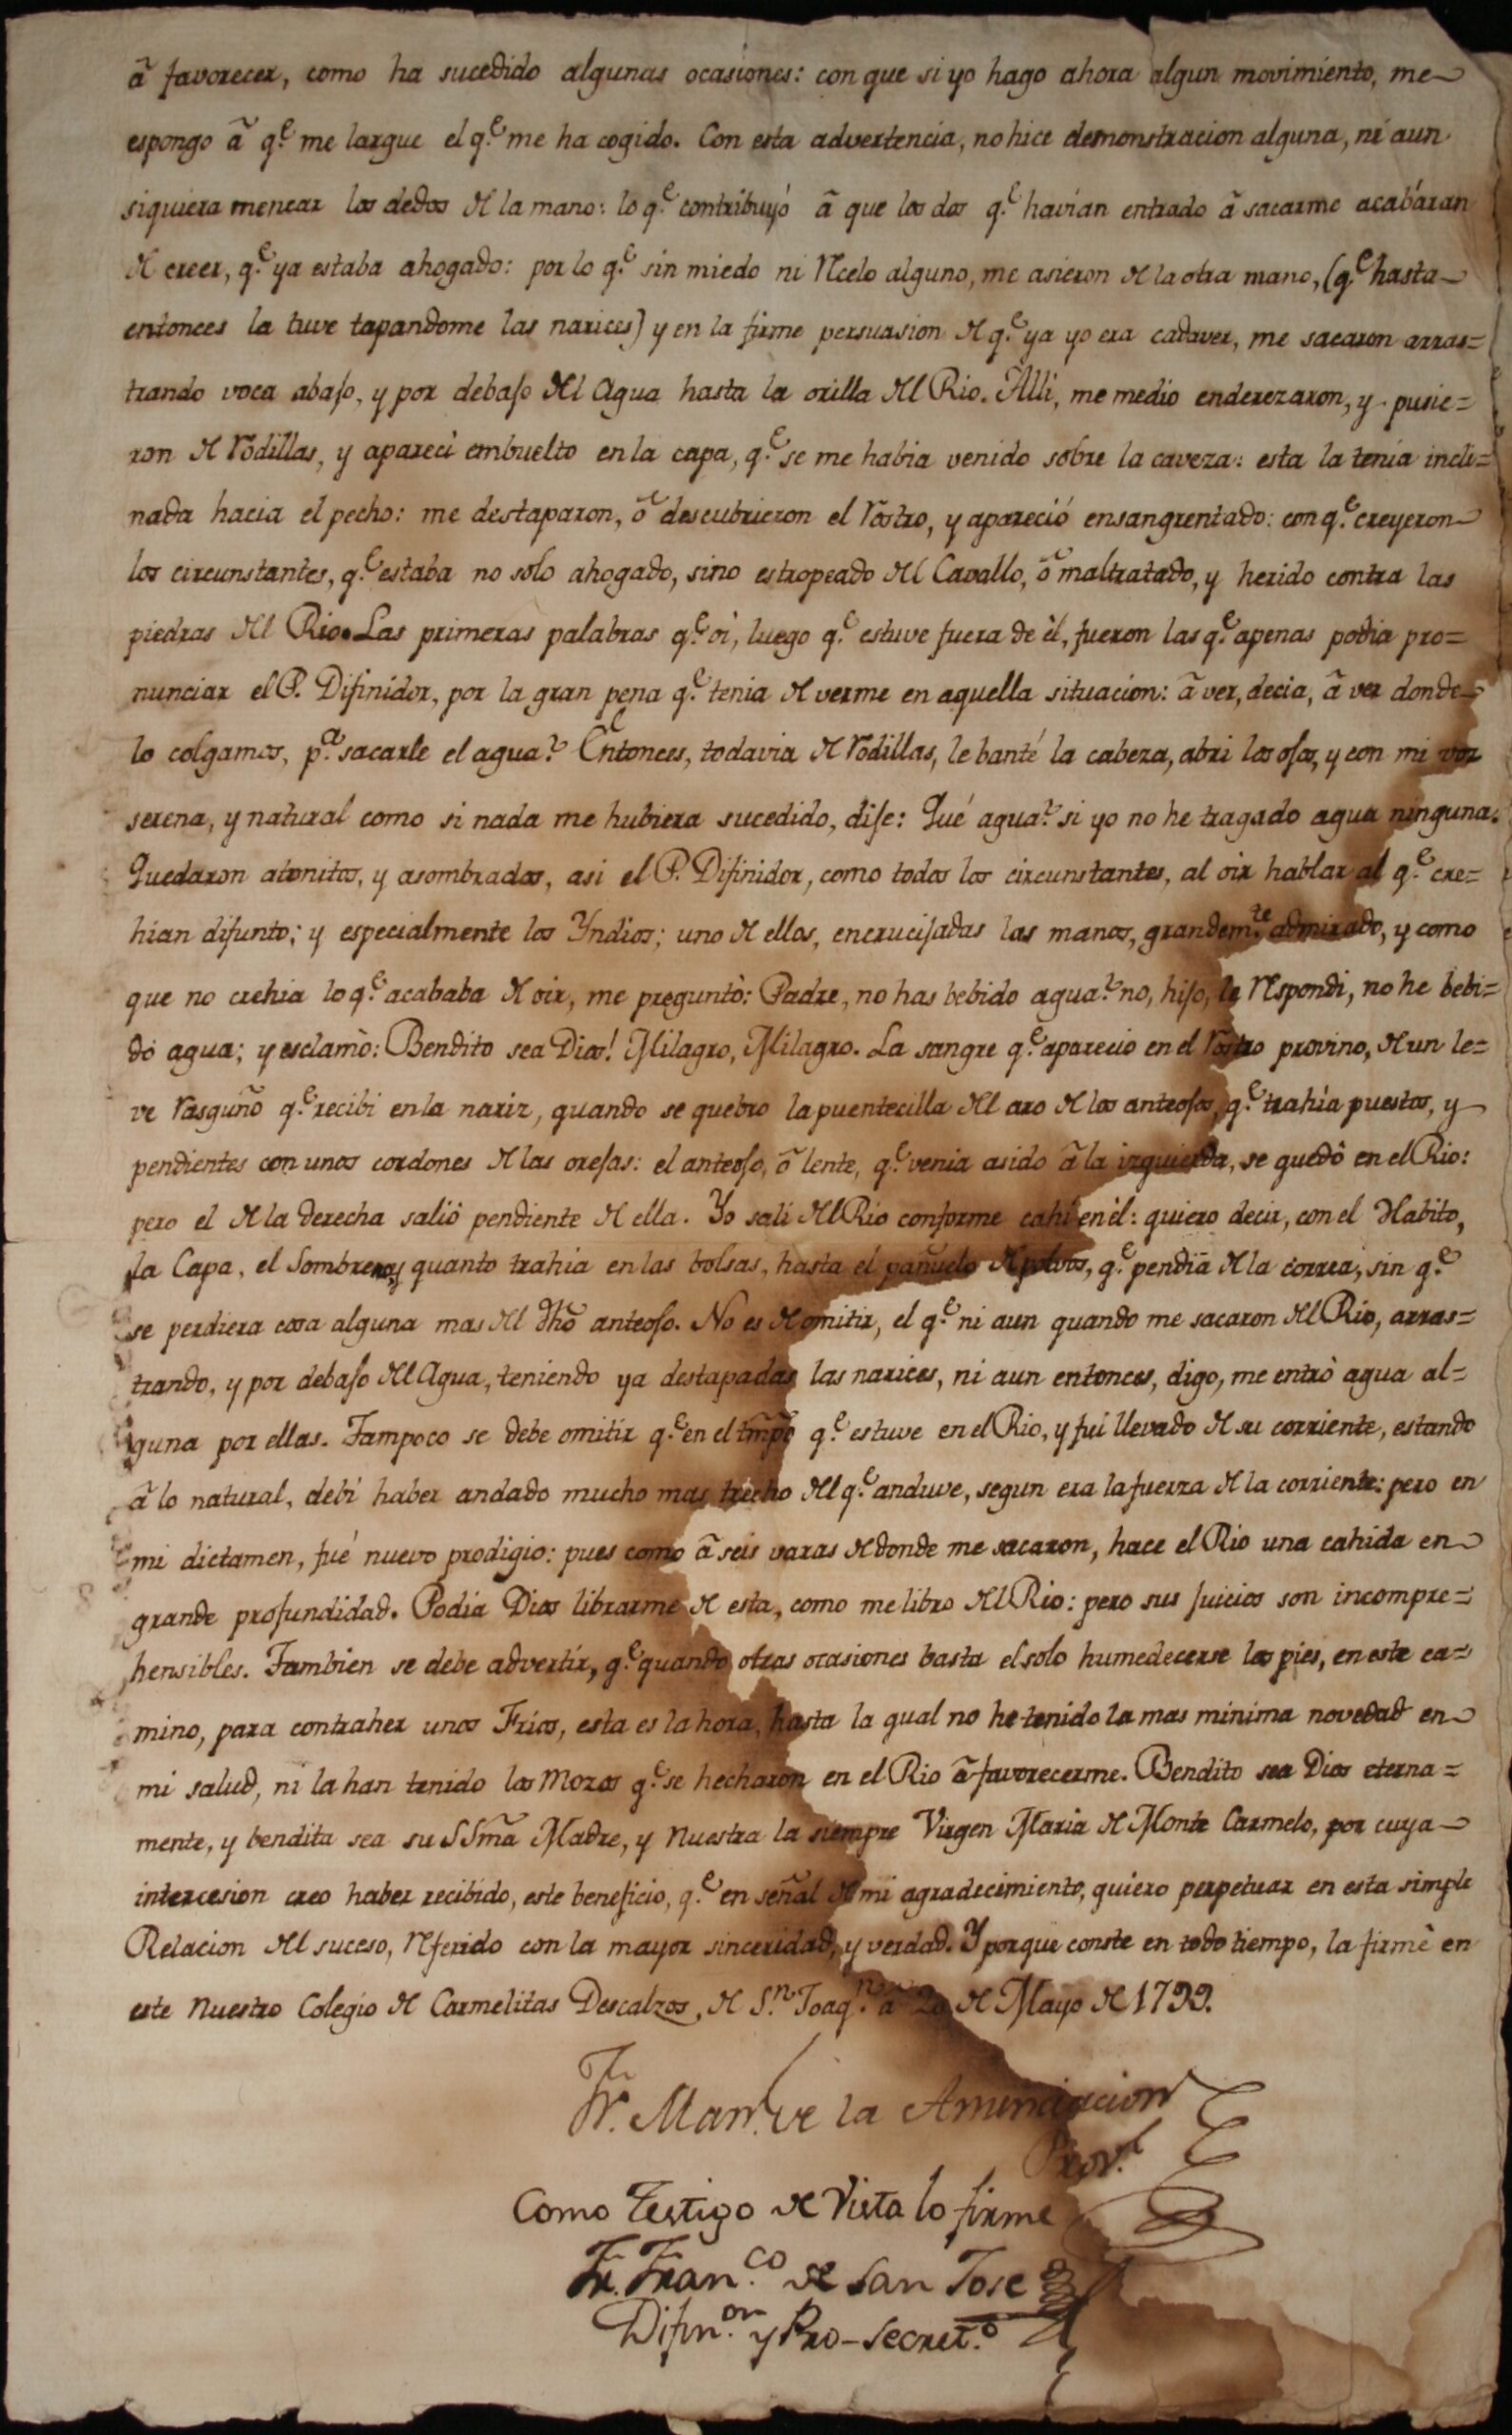 â favorecer, como ha sucedido algunas ocasiones: con que si yo hago ahora algun movimiento, me
espongo â q.e me largue el q.e me ha cogido. Con esta advertencia, no hice demonstracion alguna, ni aun
siquiera menear los dedos de la mano: lo q.e contribuyó â que los dos q.e havian entrado â sacarme acabáran
de creer, q.e ya estaba ahogado: por lo q.e sin miedo ni recelo alguno, me asieron de la otra mano, (q.e hasta
entonces la tuve tapandome las narices) y en la firme persuasion de q.e ya yo era cadaver, me sacaron arras=
trando voca abajo, y por debajo del Agua hasta la orilla del Rio. Alli, me medio enderezaron, y pusie=
ron de rodillas, y aparecì embuelto en la capa, q.e se me habia venido sobre la caveza: esta la tenia incli=
nada hacia el pecho: me destaparon, ô descubrieron el rostro, y apareció ensangrentado: con q.e creyeron
los circunstantes, q.e estaba no solo ahogado, sino estropeado del Cavallo, ô maltratado, y herido contra las
piedras del Rio. Las primeras palabras q.e oì, luego q.e estuve fuera de èl, fueron las q.e apenas podia pro=
nunciar el P. Difinidor, por la gran pena q.e tenia de verme en aquella situacion: â ver, decia, â ver donde
lo colgamos, p.a sacarle el agua? Entonces, todavia de rodillas, le banté la cabeza, abri los ojos, y con mi voz
serena, y natural como si nada me hubiera sucedido, dije: Qué agua? si yo no he tragado agua ninguna.
Quedaron atonitos, y asombrados, asi el P. Difinidor, como todos los circunstantes, al oir hablar al q.e cre=
hian difunto; y especialmente los Yndios; uno de ellos, encrucijadas las manos, grandem.te admirado, y como
que no crehia lo q.e acababa de oir, me preguntò: Padre, no has bebido agua? no, hijo, le respondi, no he bebi=
do agua; y esclamò: Bendito sea Dios! Milagro, Milagro. La sangre q.e aparecio en el rostro provino, de un le=
ve rasguño q.e recibi en la nariz, quando se quebro la puentecilla del aro de los anteojos, q.e trahia puestos, y
pendientes con unos cordones de las orejas: el anteojo, ô lente, q.e venia asido â la izquierda, se quedò en el Rio:
pero el de la derecha salió pendiente de ella. Yo salí del Rio conforme cahí en èl: quiero decir, con el Habito,
la Capa, el Sombrero, y quanto trahia en las bolsas, hasta el pañuelo de polvos, q.e pendia de la correa, sin q.e
se perdiera cosa alguna mas del dho anteojo. No es de omitir, el q.e ni aun quando me sacaron del Rio, arras=
trando, y por debajo del Agua, teniendo ya destapadas las narices, ni aun entonces, digo, me entrò agua al=
guna por ellas. Tampoco se debe omitir q.e en el tmpo q.e estuve en el Rio, y fuí llevado de su corriente, estando
â lo natural, debí haber andado mucho mas trecho del q.e anduve, segun era la fuerza de la corriente: pero en
mi dictamen, fué nuevo prodigio: pues como â seis varas de donde me sacaron, hace el Rio una cahida en
grande profundidad. Podia Dios librarme de esta, como me libro del Rio: pero sus juicios son incompre=
hensibles. Tambien se debe advertir, q.e quando otras ocasiones basta el solo humedecerse los pies, en este ca=
mino, para contraher unos Frios, esta es la hora, hasta la qual no he tenido la mas minima novedad en
mi salud, ni la han tenido los Mozos q.e se hecharon en el Rio â favorecerme. Bendito sea Dios eterna=
mente, y bendita sea su SSma Madre, y Nuestra la siempre Virgen Maria de Monte Carmelo, por cuya
intercesion creo haber recibido, este beneficio, q.e en señal de mi agradecimiento, quiero perpetuar en esta simple
Relacion del suceso, referido con la mayor sinceridad, y verdad. Y porque conste en todo tiempo, la firmè en
este Nuestro Colegio de Carmelitas Descalzos, de S.n Joaq.n a 20 de Mayo de 1799.
Fr. Man.l de la Anunciacion
Prov.l
Como testigo de Vista lo firme
Fr. Fran.co de San Jose
Difin.or y Pro-Secret.o